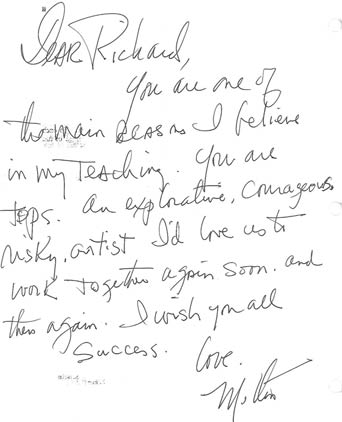 Dear Richard,
You are one of
the main reasons I believe
in my Teaching. You are
Tops. An explorative, courageous,
risky, artist I'd love us to
work together again soon. and
then again. I wish you all
success. Love.
Milton